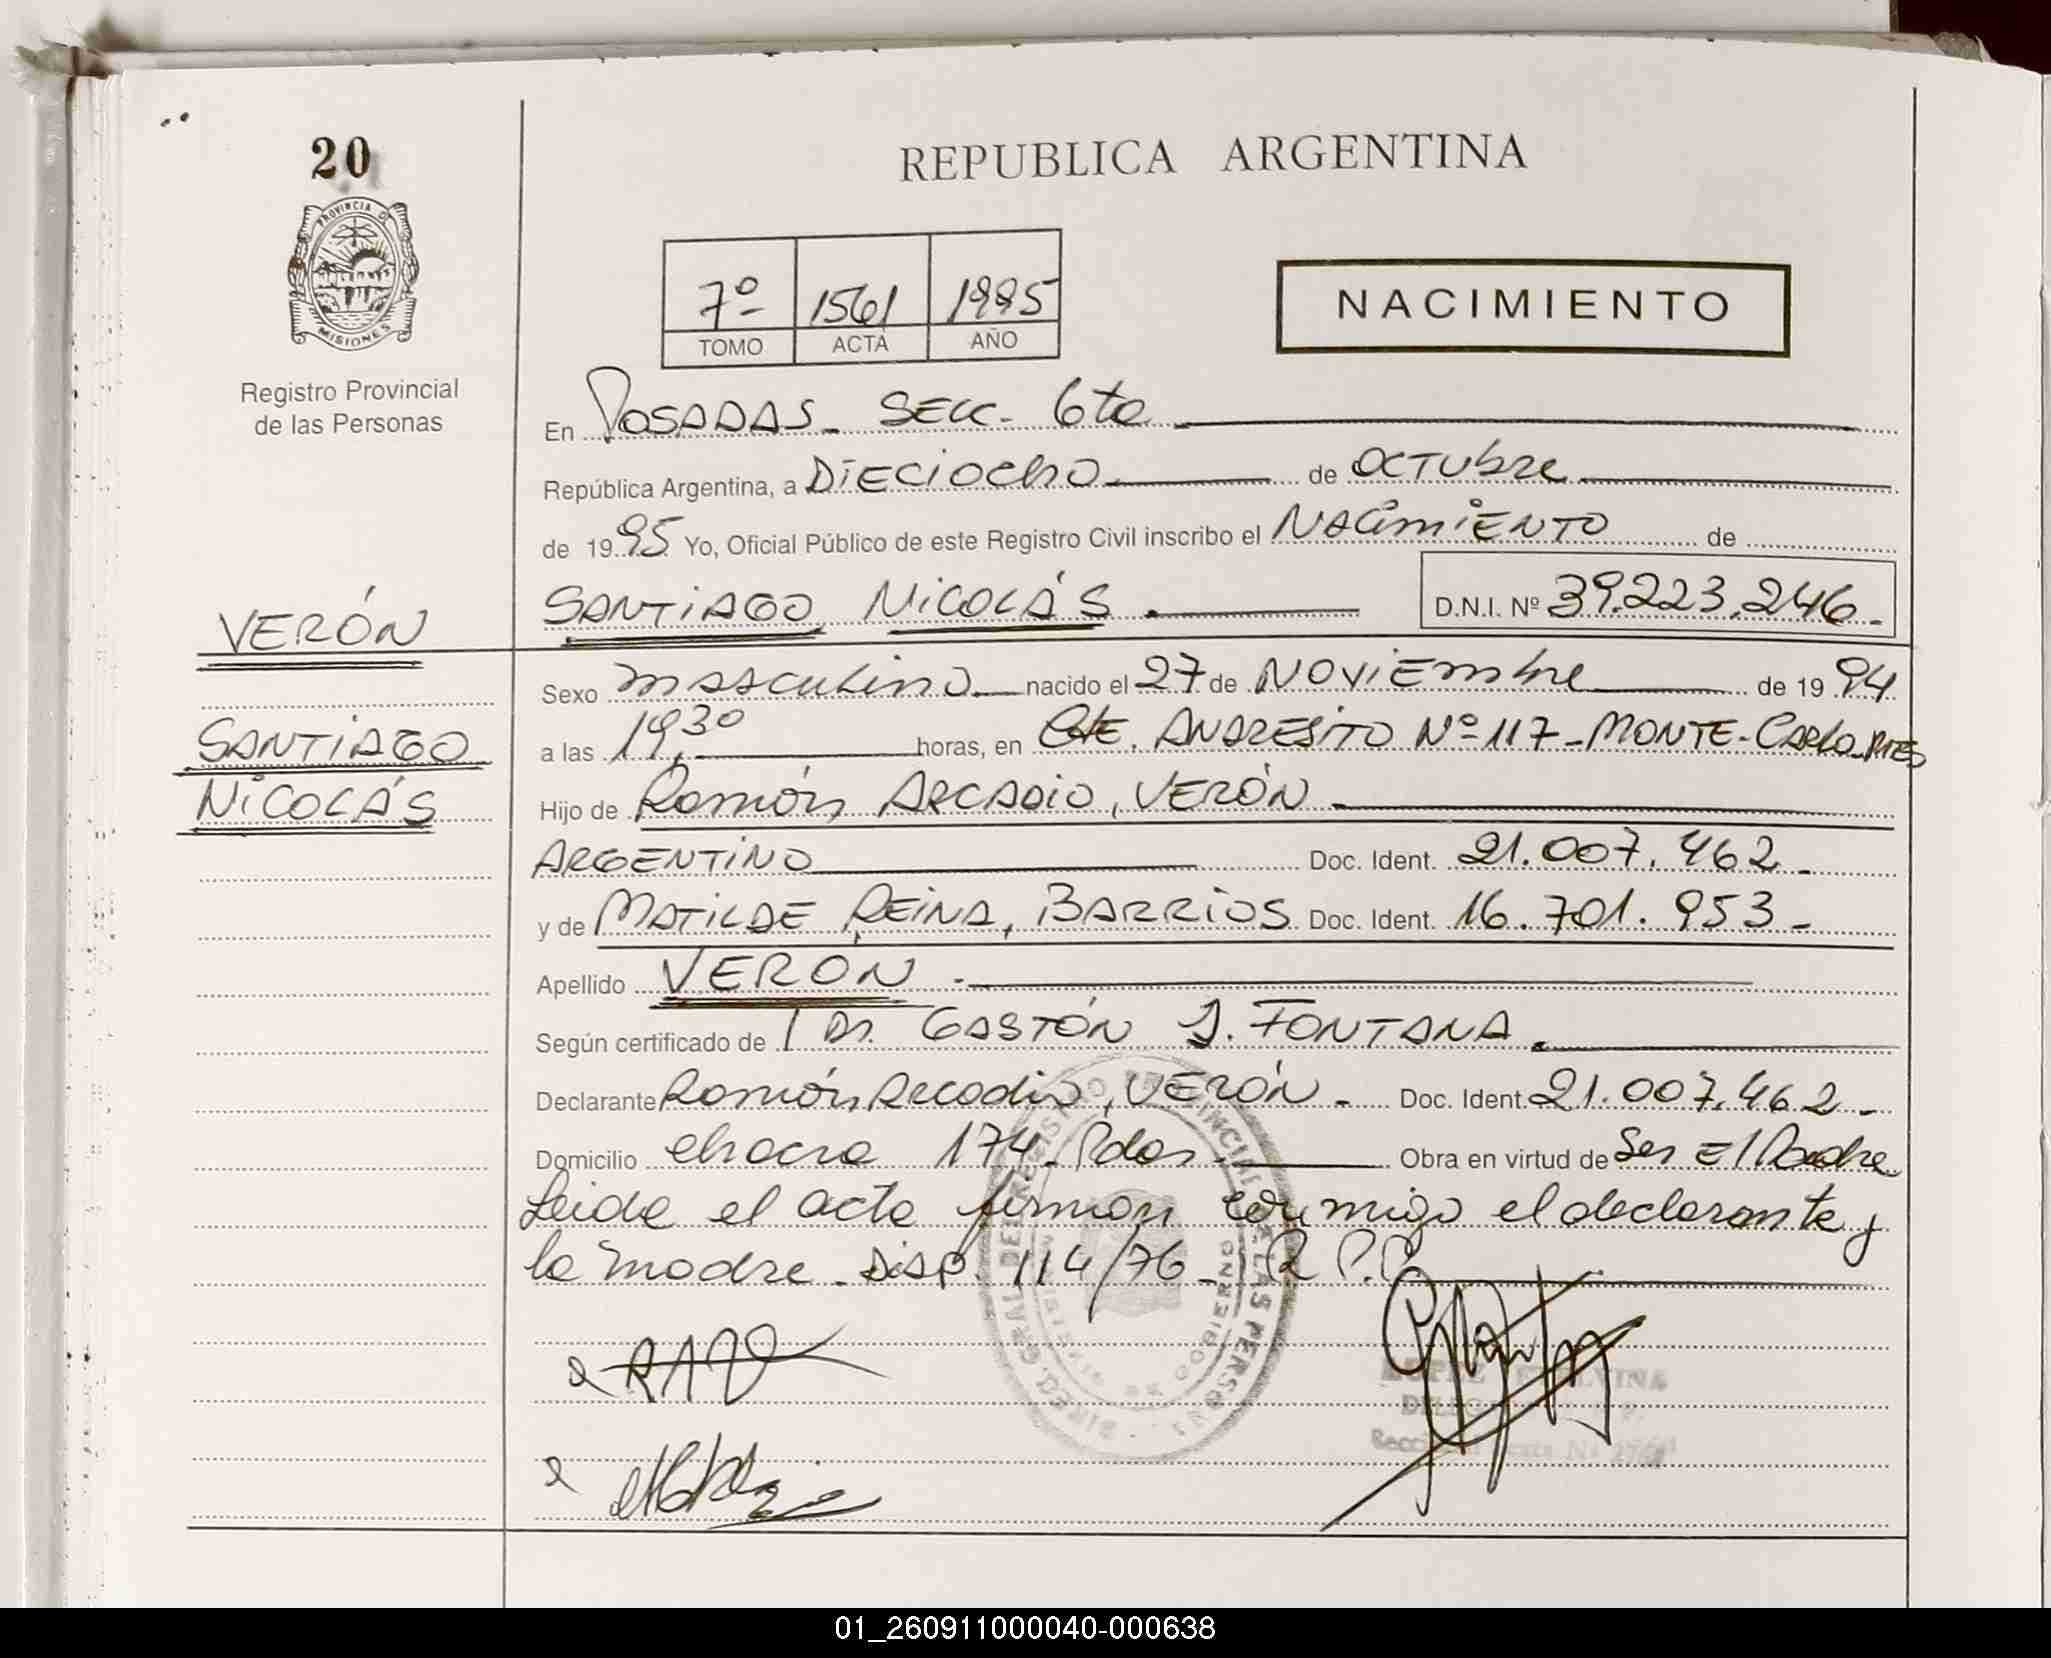 20
PROVINCIA D
MISIONES
Registro Provincial
de las Personas
REPUBLICA ARGENTINA
7º- 1561 1995
TOMO ACTA AÑO
NACIMIENTO
En POSADAS - SECC. 6ta
República Argentina, a DIECIOCHO de OCTUBRE
de 1995 Yo, Oficial Público de este Registro Civil inscribo el NACIMIENTO de
SANTIAGO NICOLÁS. D.N.I. Nº 39.223.246.-
VERÓN
SANTIAGO
NICOLÁS
Sexo masculino nacido el 27 de NOVIEMBRE de 1994
a las 19,30 horas, en ANDRESITO Nº 117 - MONTE-CARLO
Hijo de Ramón ARCADIO, VERÓN
ARGENTINO Doc. Ident. 21.007.462-
y de MATILDE REINA, BARRIOS Doc. Ident. 16.701.953-
Apellido VERÓN.
Según certificado de Dr. GASTÓN J. FONTANA.
Declarante Ramón Arcadio, VERÓN. Doc. Ident. 21.007.462-
Domicilio chacra 174 - Pdas. Obra en virtud de Ser El Padre
Leida el acta firman conmigo el declarante y
la madre. Disp. 114/76 - R.P.P.
RAV
01_260911000040-000638